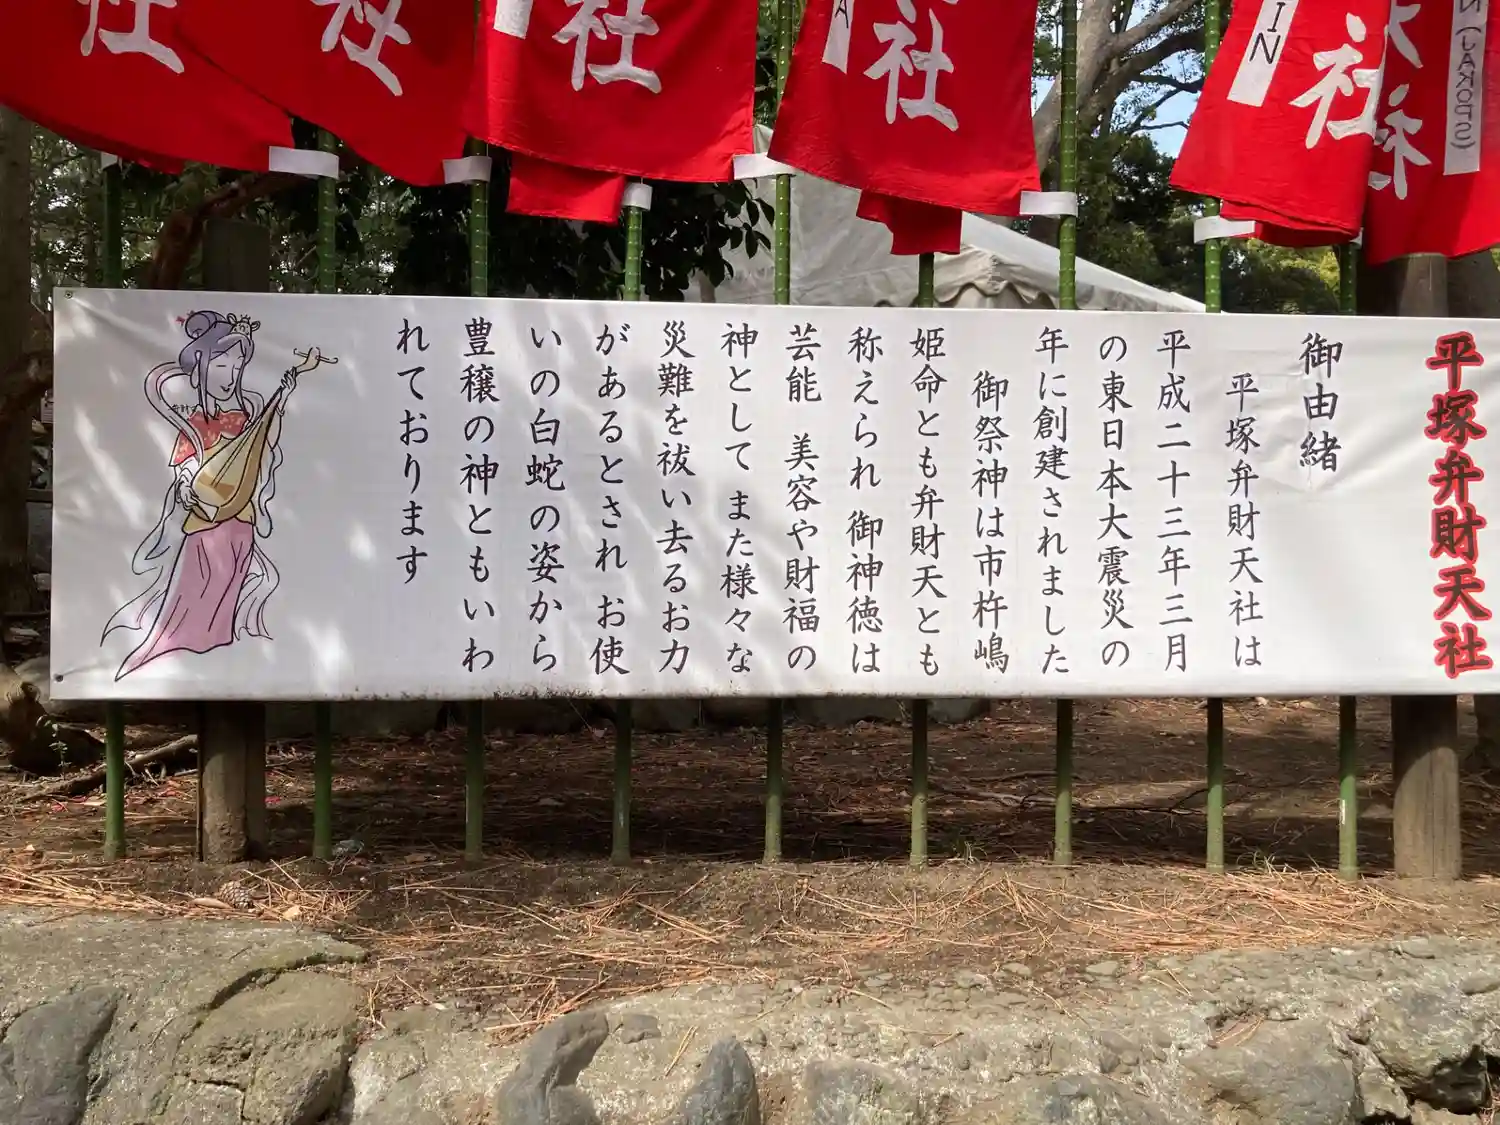 社
社
社
社
A
社
IN
社
N (JAKOPS)
平塚弁財天社
御由緒
平塚弁財天社は
平成二十三年三月
の東日本大震災の
年に創建されました
御祭神は市杵嶋
姫命とも弁財天とも
称えられ 御神徳は
芸能 美容や財福の
神として また様々な
災難を祓い去るお力
があるとされ お使
いの白蛇の姿から
豊穣の神ともいわ
れております